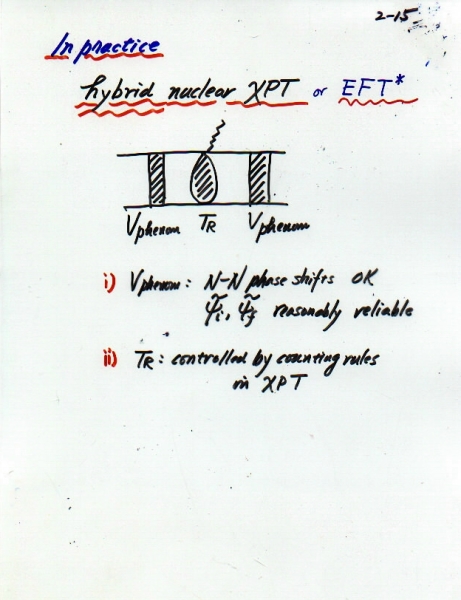 2-15
In practice
hybrid nuclear χPT or EFT*
Vphenom TR Vphenom
i) Vphenom: N-N phase shifts OK
ψ̃i, ψ̃f reasonably reliable
ii) TR: controlled by counting rules
in χPT